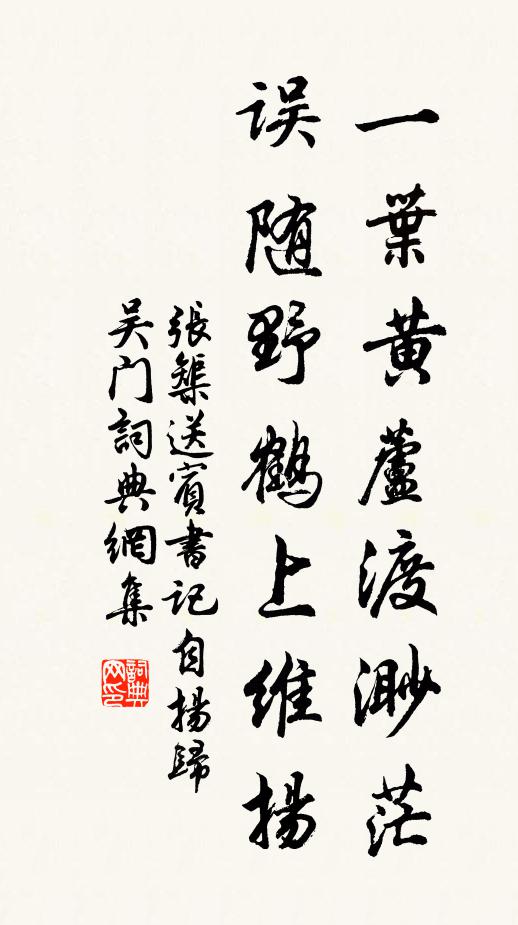 一葉黄蘆渡渺茫
误随野鶴上維揚
張榘送賓書記自揚歸
吴门詞典網集
詞典网印